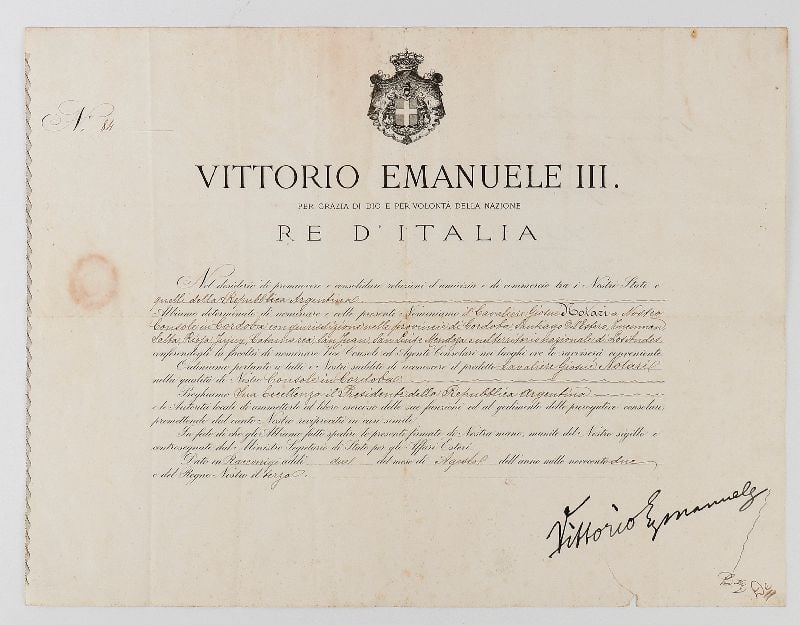 N. 84
VITTORIO EMANUELE III.
PER GRAZIA DI DIO E PER VOLONTÀ DELLA NAZIONE
RE D'ITALIA
Nel desiderio di promuovere e consolidare relazioni d'amicizia e di commercio tra i Nostri Stati e
quelli della Repubblica Argentina
Abbiamo determinato di nominare e colle presenti Nominiamo il Cavaliere Notari a Nostro
Console in Cordoba con giurisdizione nelle provincie di Cordoba, Santiago Tucuman
Salta, Rioja, Jujuy, Catamarca, San Juan, San Luis, Mendoza e nel territorio nazionale di Los Andes
comprendogli la facoltà di nominare Vice Consoli ed Agenti Consolari nei luoghi ove lo ravviserà conveniente.
Ordiniamo pertanto a tutti i Nostri sudditi di riconoscere il predetto Cavaliere Notari
nella qualità di Nostro Console in Cordoba
Preghiamo Sua Eccellenza il Presidente della Repubblica Argentina
e le Autorità locali di ammetterlo al libero esercizio delle sue funzioni ed al godimento delle prerogative consolari
promettendo dal canto Nostro reciprocità in casi simili.
In fede di che gli Abbiamo fatto spedire le presenti firmate di Nostra mano, munite del Nostro sigillo e
contrassegnate dal Ministro Segretario di Stato per gli Affari Esteri.
Dato in Racconigi addì due del mese di Agosto dell'anno mille novecento due
e del Regno Nostro il terzo.
Vittorio Emanuele